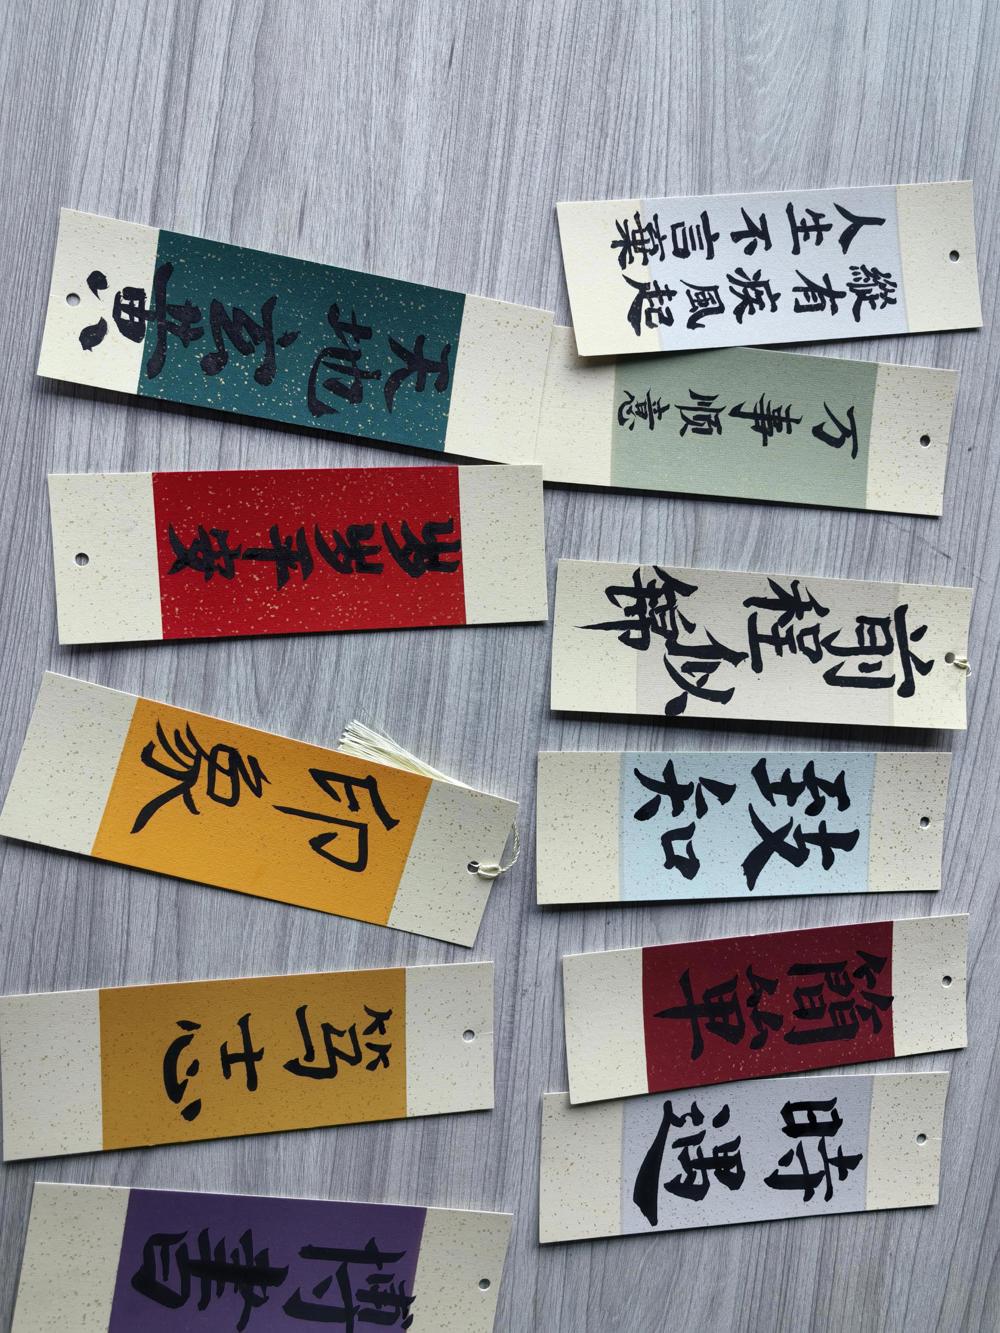 天地玄黄
岁岁平安
印象
笃志
博書
縱有疾風起
人生不言棄
万事顺意
前程似錦
致知
簡単
時遇